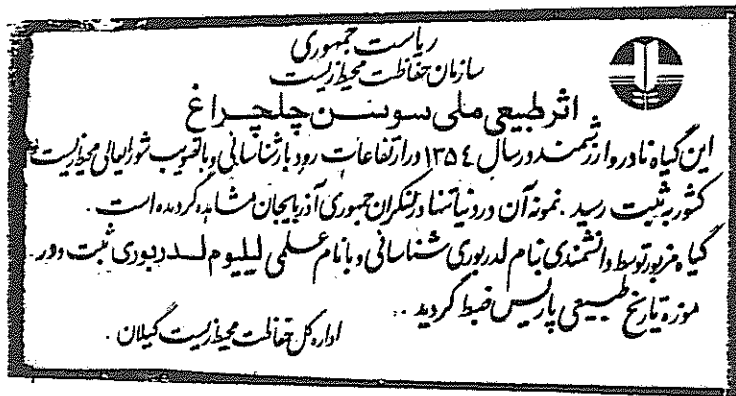 ریاست جمهوری
سازمان حفاظت محیط زیست
اثر طبیعی ملی سوسن چلچراغ
این گیاه نادر و ارزشمند در سال ۱۳۵٤ در ارتفاعات رودبار شناسائی و با تصویب شورایعالی محیط زیست
کشور به ثبت رسید . نمونه آن در دنیا تنها در لنکران جمهوری آذربایجان مشاهده گردیده است .
گیاه مزبور توسط دانشمندی بنام لدربوری شناسائی و با نام علمی لیلیوم لدربوری ثبت و در
موزه تاریخ طبیعی پاریس ضبط گردید ..
اداره کل حفاظت محیط زیست گیلان .